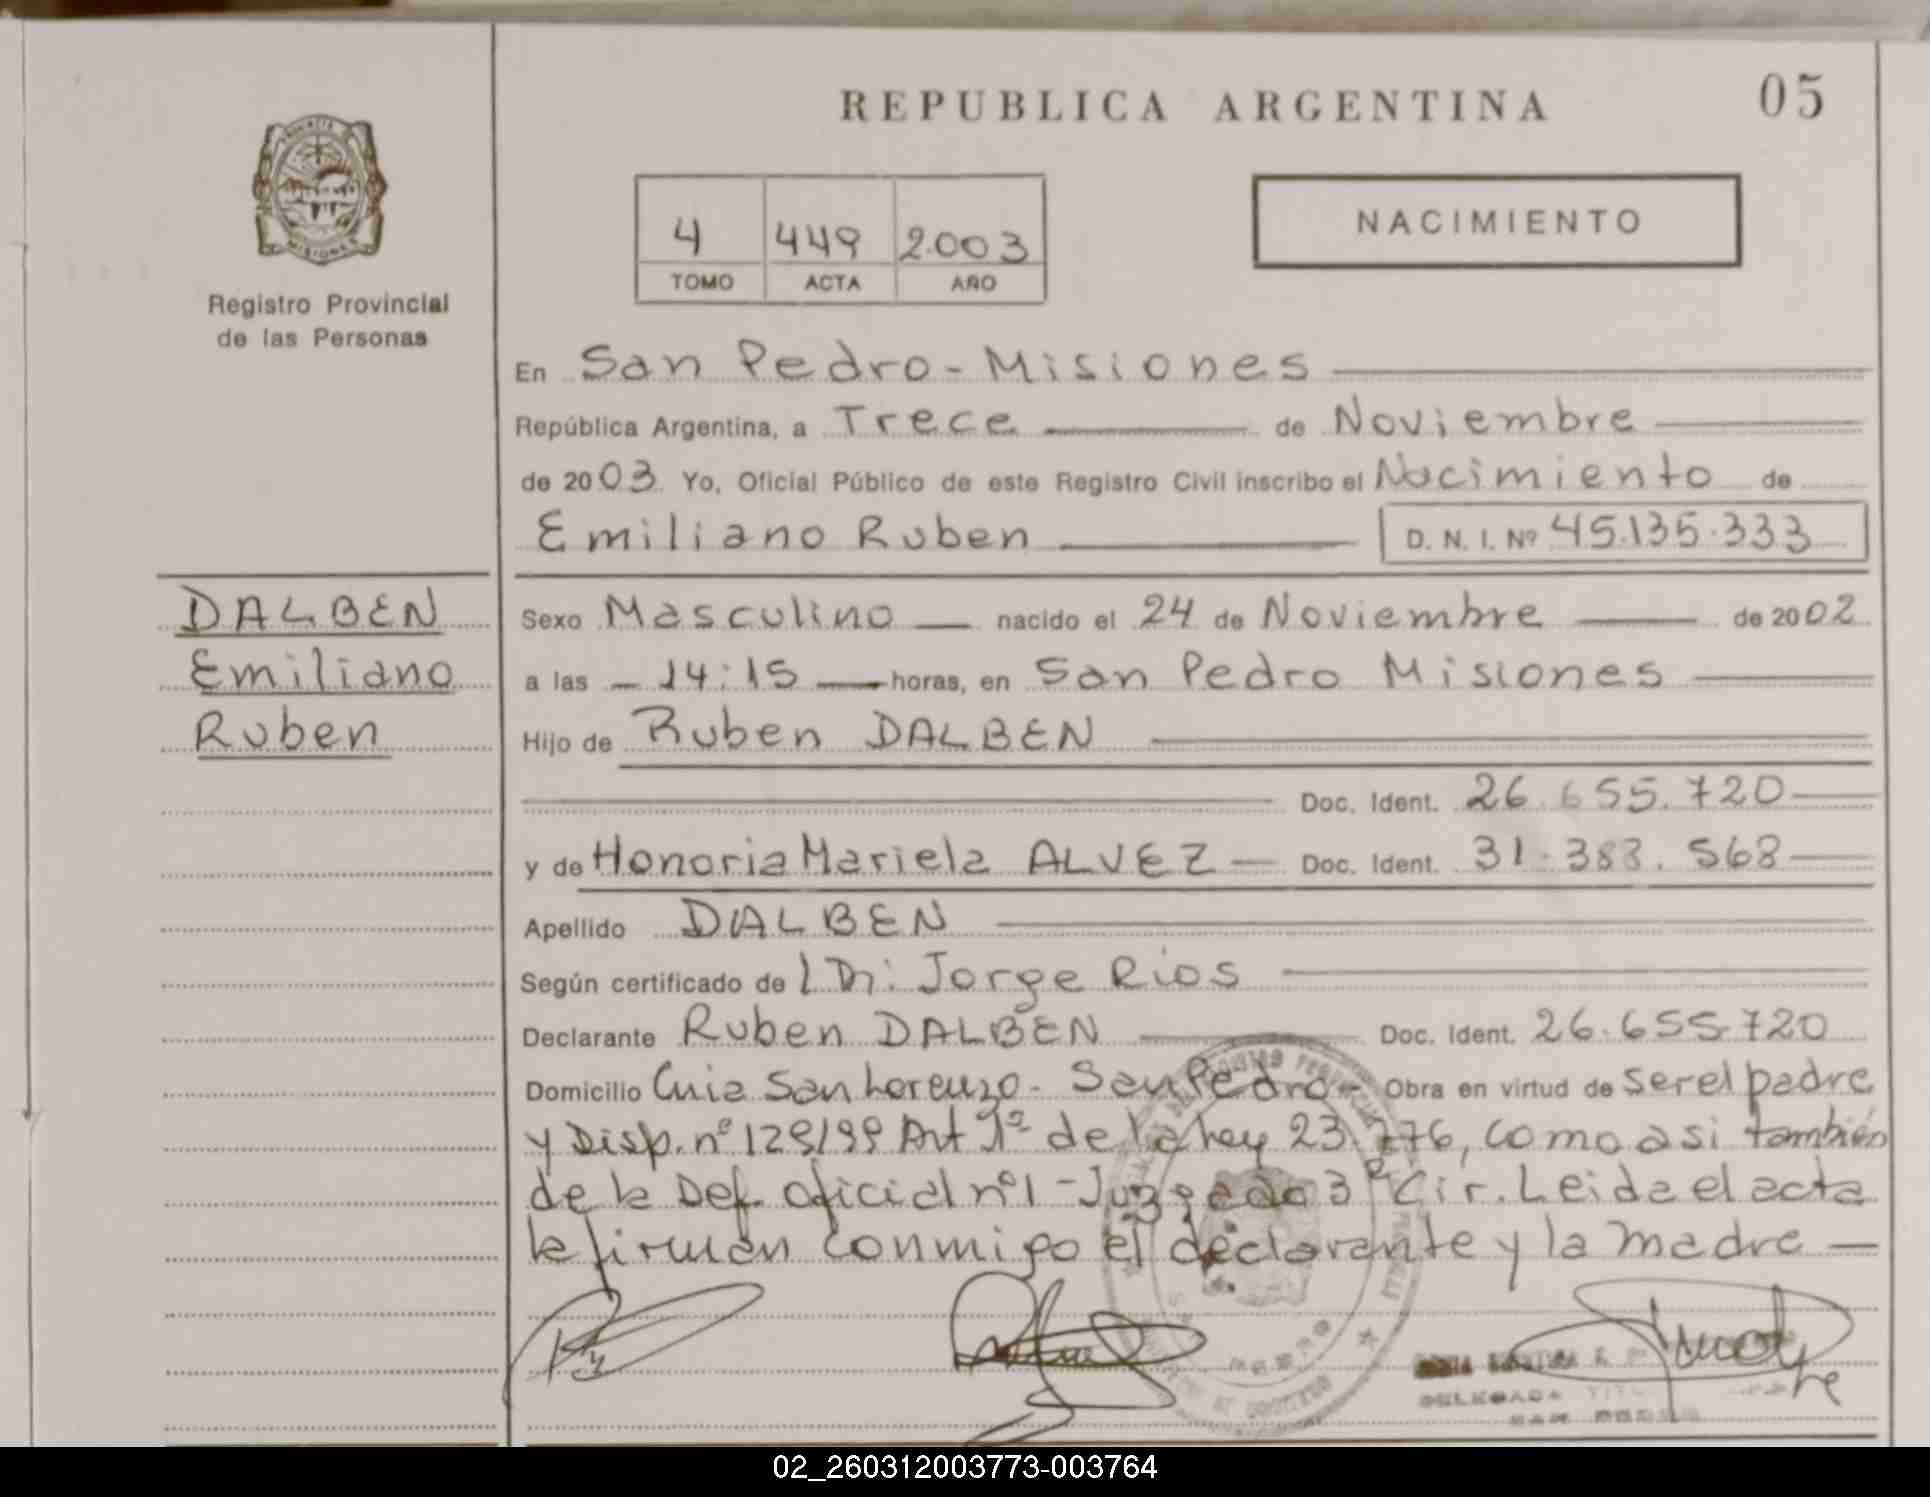 REPUBLICA ARGENTINA
05
4 449 2.003
TOMO ACTA AÑO
NACIMIENTO
MISIONES
Registro Provincial
de las Personas
En San Pedro - Misiones
República Argentina, a Trece de Noviembre
de 2003 Yo, Oficial Público de este Registro Civil inscribo el Nacimiento de
Emiliano Ruben D. N. I. Nº 45.135.333
DALBEN
Emiliano
Ruben
Sexo Masculino nacido el 24 de Noviembre de 2002
a las 14:15 horas, en San Pedro Misiones
Hijo de Ruben DALBEN
Doc. Ident. 26.655.720
y de Honoria Mariela ALVEZ Doc. Ident. 31.383.568
Apellido DALBEN
Según certificado de Jorge Rios
Declarante Ruben DALBEN Doc. Ident. 26.655.720
Domicilio San Lorenzo - San Pedro - Obra en virtud de ser el padre
y Disp. nº 129/99 Art 1º de la Ley 23.776, como asi también
de la Def. oficial nº1 - Juzgado 3º Cir. Leida el acta
la firman conmigo el declarante y la madre
DELEGADA
SAN PEDRO
02_260312003773-003764